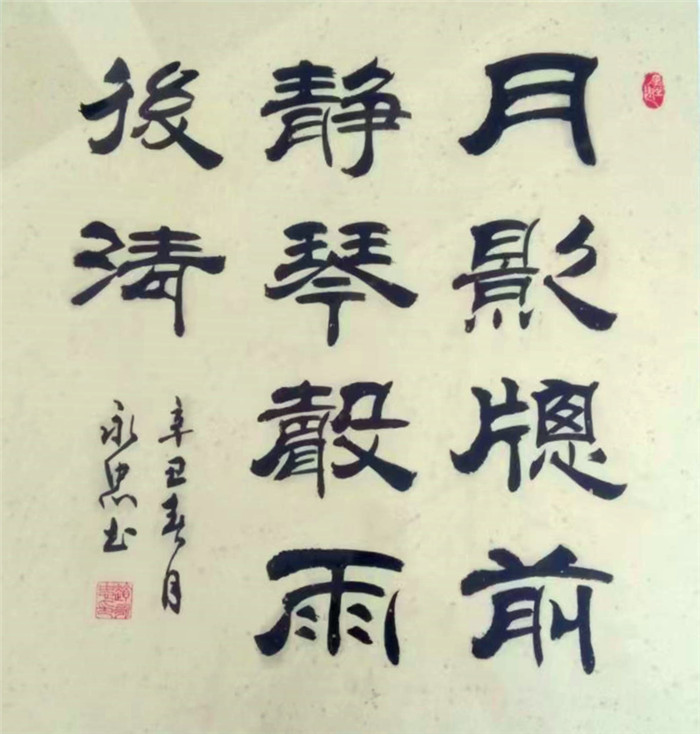 月影牕前
静琴聲雨
後清
辛丑春月
永忠书